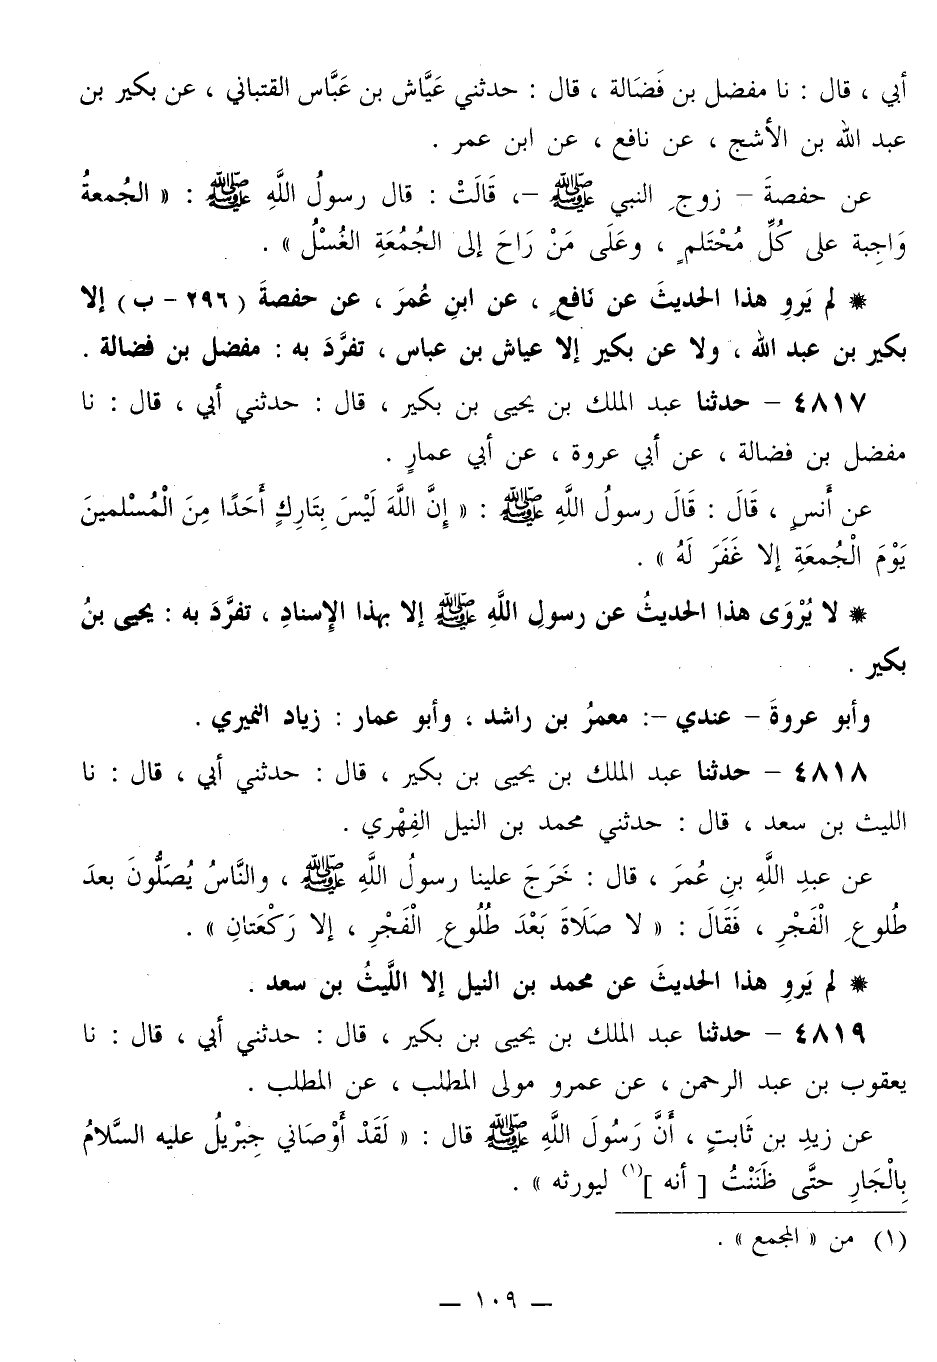 أبي ، قال : نا مفضل بن فَضَالة ، قال : حدثني عَيَّاش بن عَبَّاس القتباني ، عن بكير بن
عبد الله بن الأشج ، عن نافع ، عن ابن عمر .
عن حفصةَ – زوجِ النبي ﷺ –، قَالَتْ : قال رسولُ اللَّهِ ﷺ : « الجُمعةُ
وَاجِبة على كُلِّ مُحْتَلمٍ ، وعَلَى مَنْ رَاحَ إلى الجُمُعَةِ الغُسْلُ » .
* لم يَروِ هذا الحديثَ عن نَافعٍ ، عن ابنِ عُمرَ ، عن حفصةَ ( ٢٩٦ – ب ) إلا
بكير بن عبد الله ، ولا عن بكير إلا عياش بن عباس ، تفرَّدَ به : مفضل بن فضالة .
٤٨١٧ – حدثنا عبد الملك بن يحيى بن بكير ، قال : حدثني أبي ، قال : نا
مفضل بن فضالة ، عن أبي عروة ، عن أبي عمارٍ .
عن أَنسٍ ، قَالَ : قَالَ رسولُ اللَّهِ ﷺ : « إِنَّ اللَّهَ لَيْسَ بِتَارِكٍ أَحَدًا مِنَ الْمُسْلمينَ
يَوْمَ الْجُمعَةِ إلا غَفَرَ لَهُ » .
* لا يُرْوَى هذا الحديثُ عن رسولِ اللَّهِ ﷺ إلا بهذا الإِسنادِ ، تفرَّدَ به : يحيى بنُ
بكير .
وأبو عروةَ – عندي –: معمرُ بن راشد ، وأبو عمار : زياد النميري .
٤٨١٨ – حدثنا عبد الملك بن يحيى بن بكير ، قال : حدثني أبي ، قال : نا
الليث بن سعد ، قال : حدثني محمد بن النيل الفِهْري .
عن عبدِ اللَّهِ بنِ عُمرَ ، قال : خَرَجَ علينا رسولُ اللَّهِ ﷺ ، والنَّاسُ يُصَلُّونَ بعدَ
طُلوعِ الْفَجْرِ ، فَقَالَ : « لا صَلَاةَ بَعْدَ طُلُوعِ الْفَجْرِ ، إلا رَكْعَتانِ » .
* لم يَروِ هذا الحديثَ عن محمد بن النيل إلا اللَّيثُ بن سعد .
٤٨١٩ – حدثنا عبد الملك بن يحيى بن بكير ، قال : حدثني أبي ، قال : نا
يعقوب بن عبد الرحمن ، عن عمرو مولى المطلب ، عن المطلب .
عن زيدِ بن ثَابتٍ ، أَنَّ رَسُولَ اللَّهِ ﷺ قال : « لَقَدْ أَوْصَاني جِبْرِيلُ عليه السَّلامُ
بِالْجَارِ حتَّى ظَنَنْتُ [ أنه ](١) ليورثه » .
(١) من « المجمع » .
— ١٠٩ —